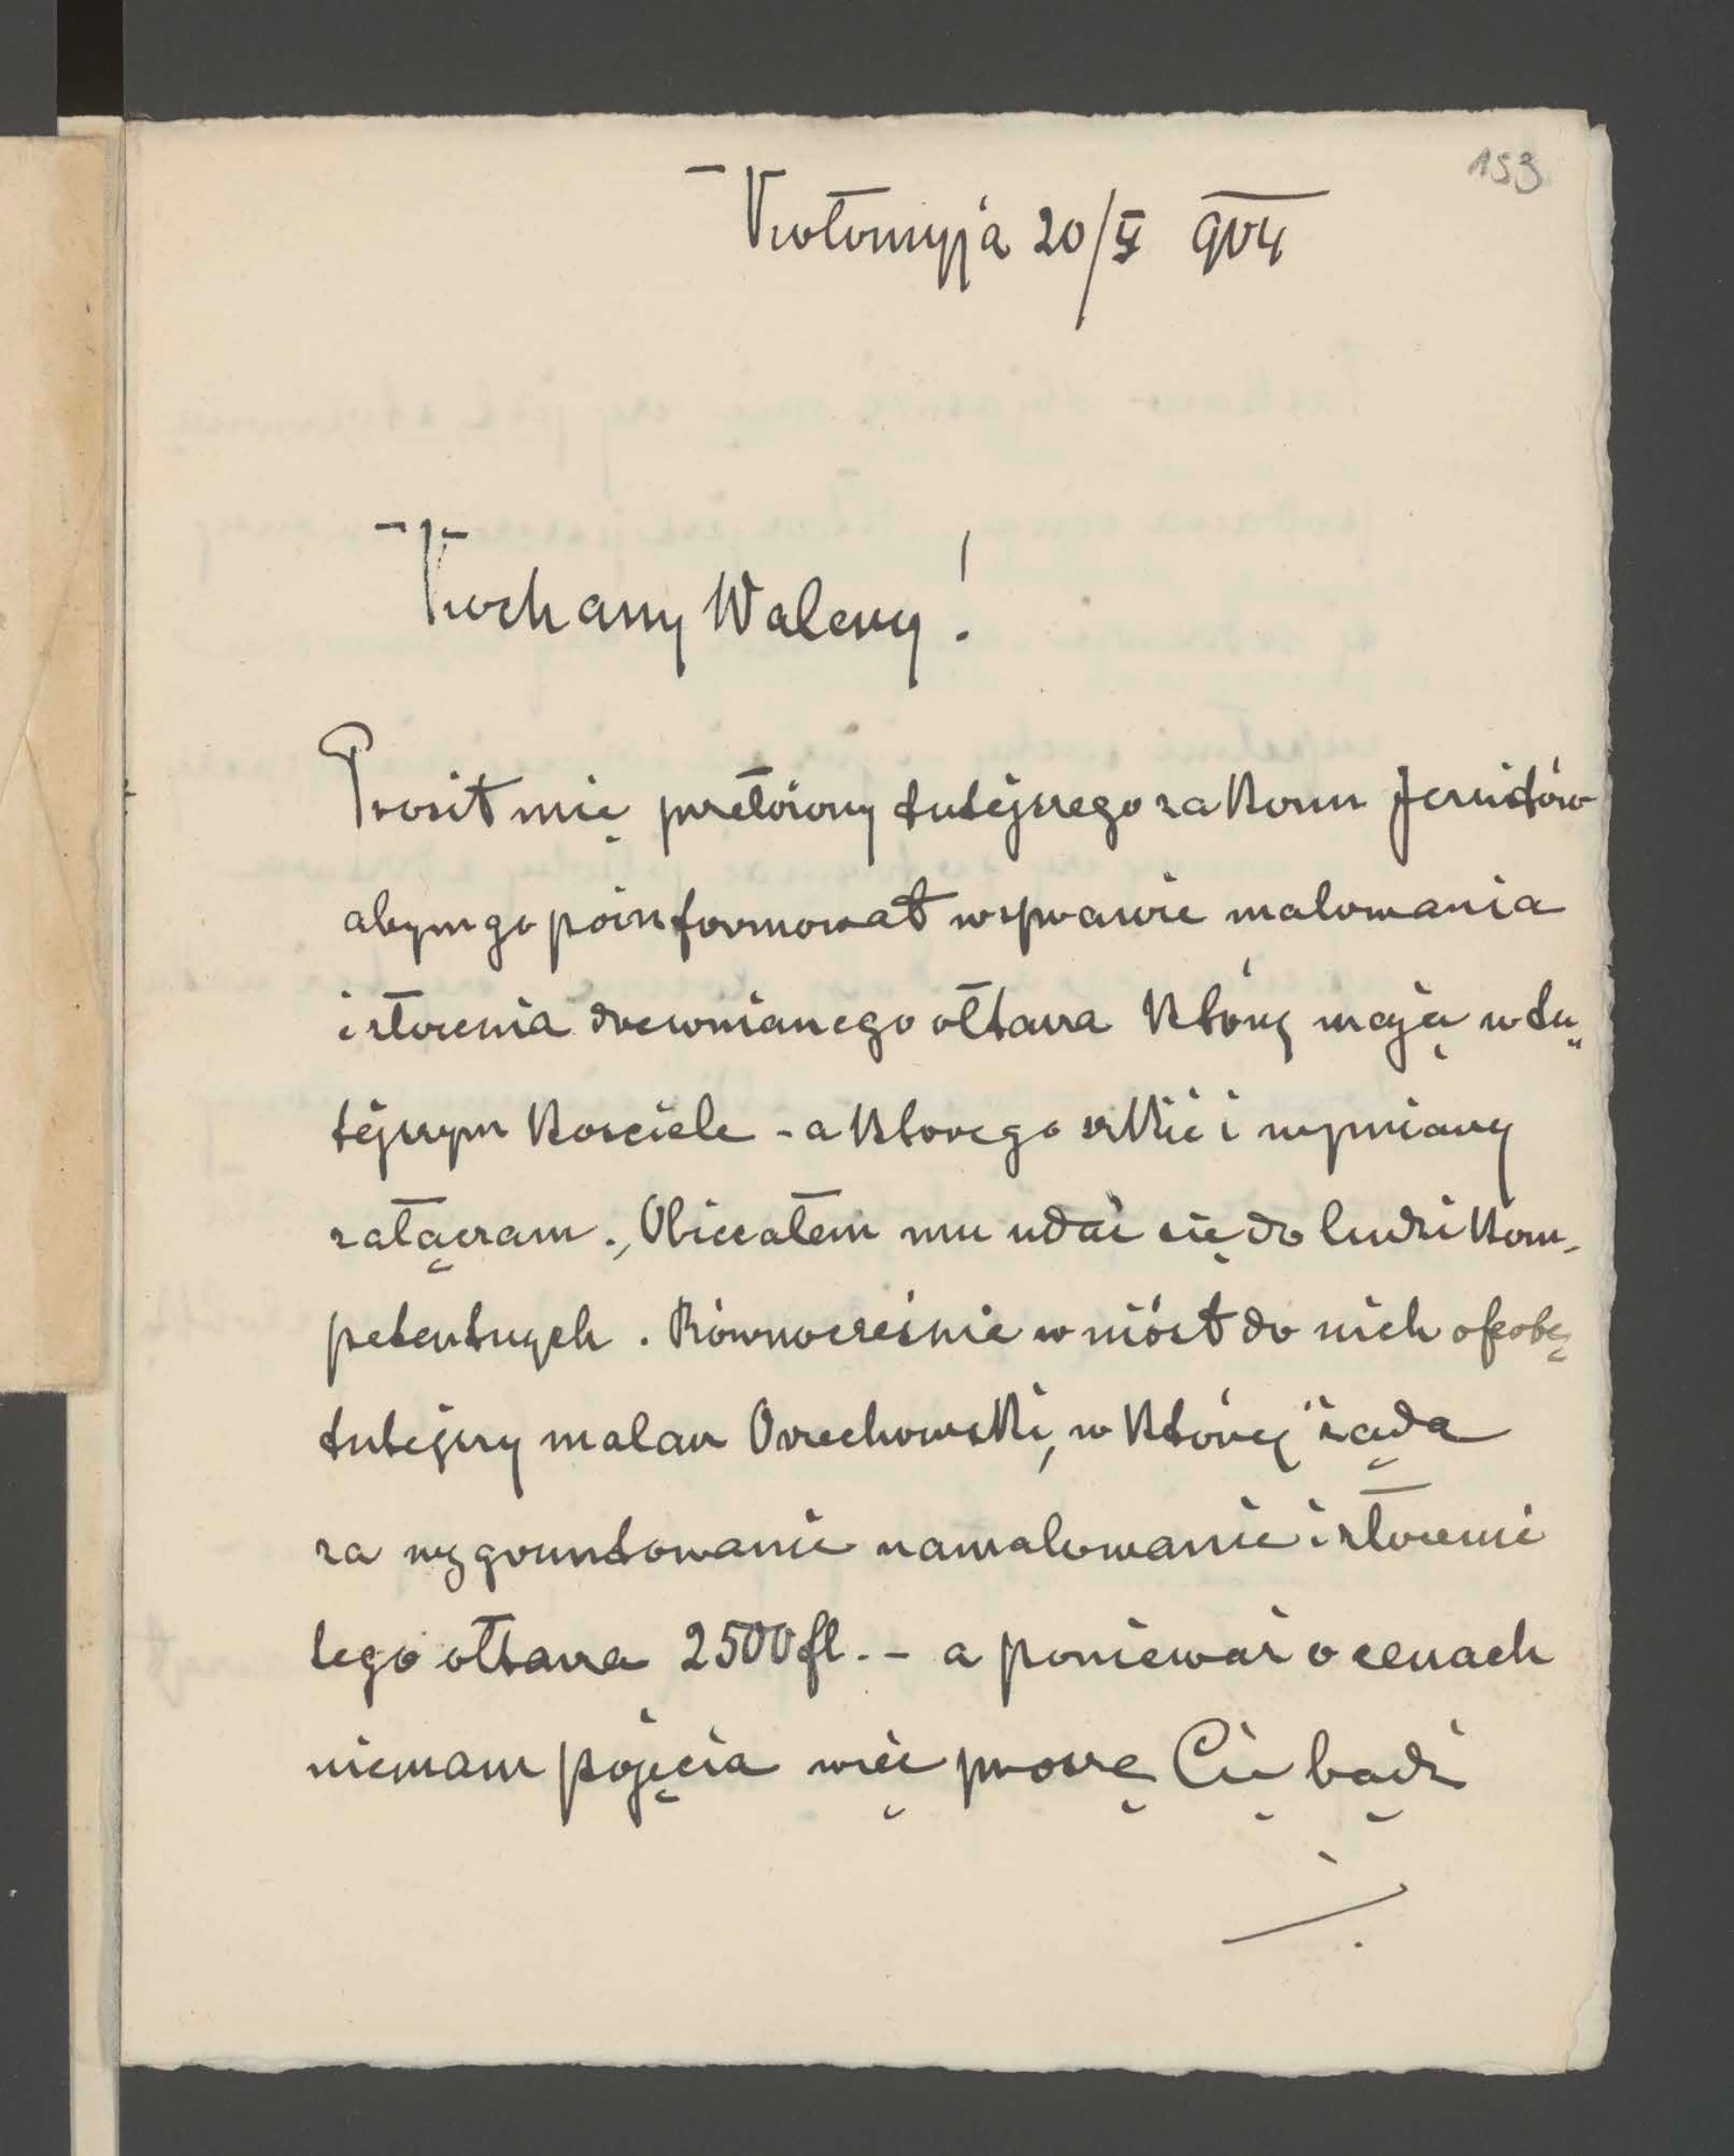 153
Kołomyja 20/V 904
Kochany Walery!
Prosił mię przełożony tutejszego zakonu Jezuitów
abym go poinformował w sprawie malowania
i złocenia drewnianego ołtarza który mają w tu„
tejszym kościele - a którego szkic i wymiary
załączam. Obiecałem mu udać się do ludzi kom-
petentnych. Równocześnie wniósł do nich ofertę
tutejszy malarz Orzechowski, w której żąda
za wygruntowanie namalowanie i złocenie
tego ołtarza 2500 fl. - a ponieważ o cenach
niemam pojęcia więc proszę Cię bądź